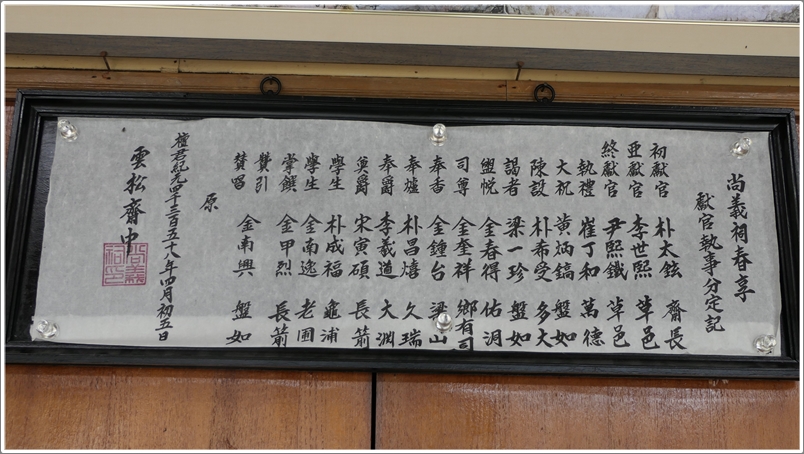 尚義祠春享
獻官執事分定記
初獻官 朴太鉉 齋長
亞獻官 李世熙 草邑
終獻官 尹熙鐵 草邑
執禮 崔丁和 萬德
大祝 黃炳鎬 盤如
陳設 朴希受 多大
謁者 梁一珍 盤如
盥悅 金春得 佑洞
司尊 金奎祥 鄉有司
奉香 金鍾台 梁山
奉爐 朴昌熺 久瑞
奉爵 李羲道 大淵
奠爵 宋寅碩 長箭
學生 朴成福 龜浦
學生 金南逸 老圃
掌饌 金甲烈 長箭
贊引
贊唱 金南興 盤如
原
檀君紀元四千三百五十八年四月初五日
雲松齋中
尚義祠印